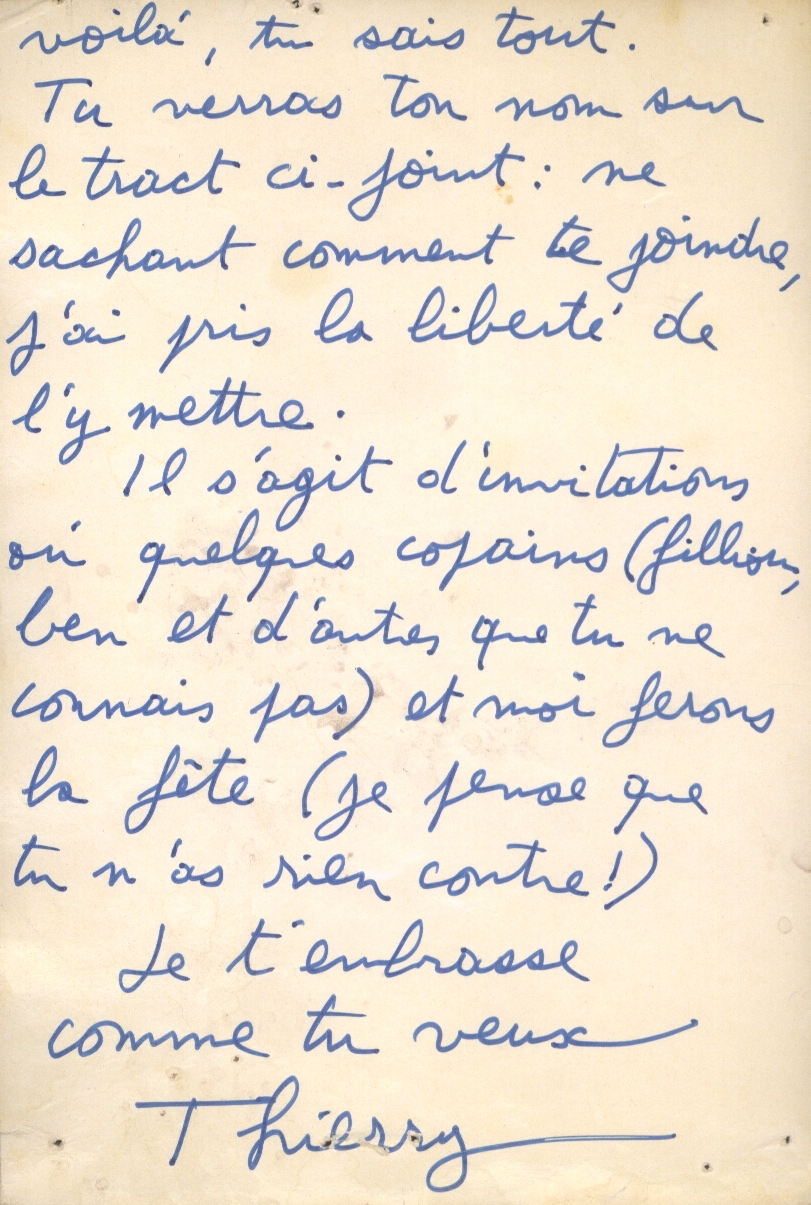 voilà, tu sais tout.
Tu verras ton nom sur
le tract ci-joint : ne
sachant comment te joindre,
j'ai pris la liberté de
l'y mettre.
Il s'agit d'invitations
où quelques copains (fillion,
ben et d'autres que tu ne
connais pas) et moi ferons
la fête (je pense que
tu n'as rien contre !)
Je t'embrasse
comme tu veux
Thierry